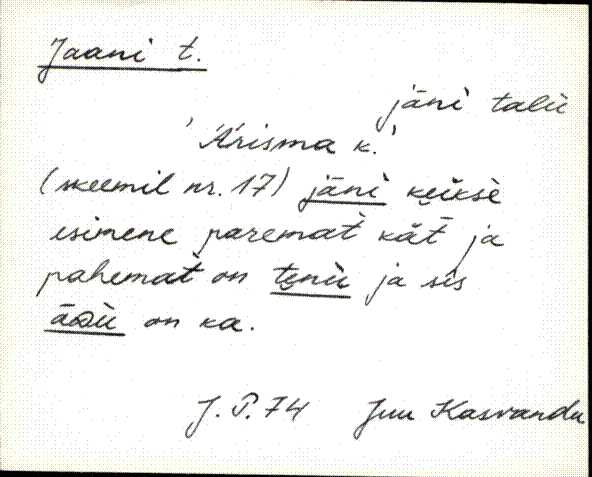 Jaani t.
jāni talù
'Ärisma k.'
(skeemil nr. 17) jāni keikse
esimene paremat̀ kät̄ ja
pahemat̀ on tenù ja sìs
on ka.
J. P. 74 Juu Kasvandu